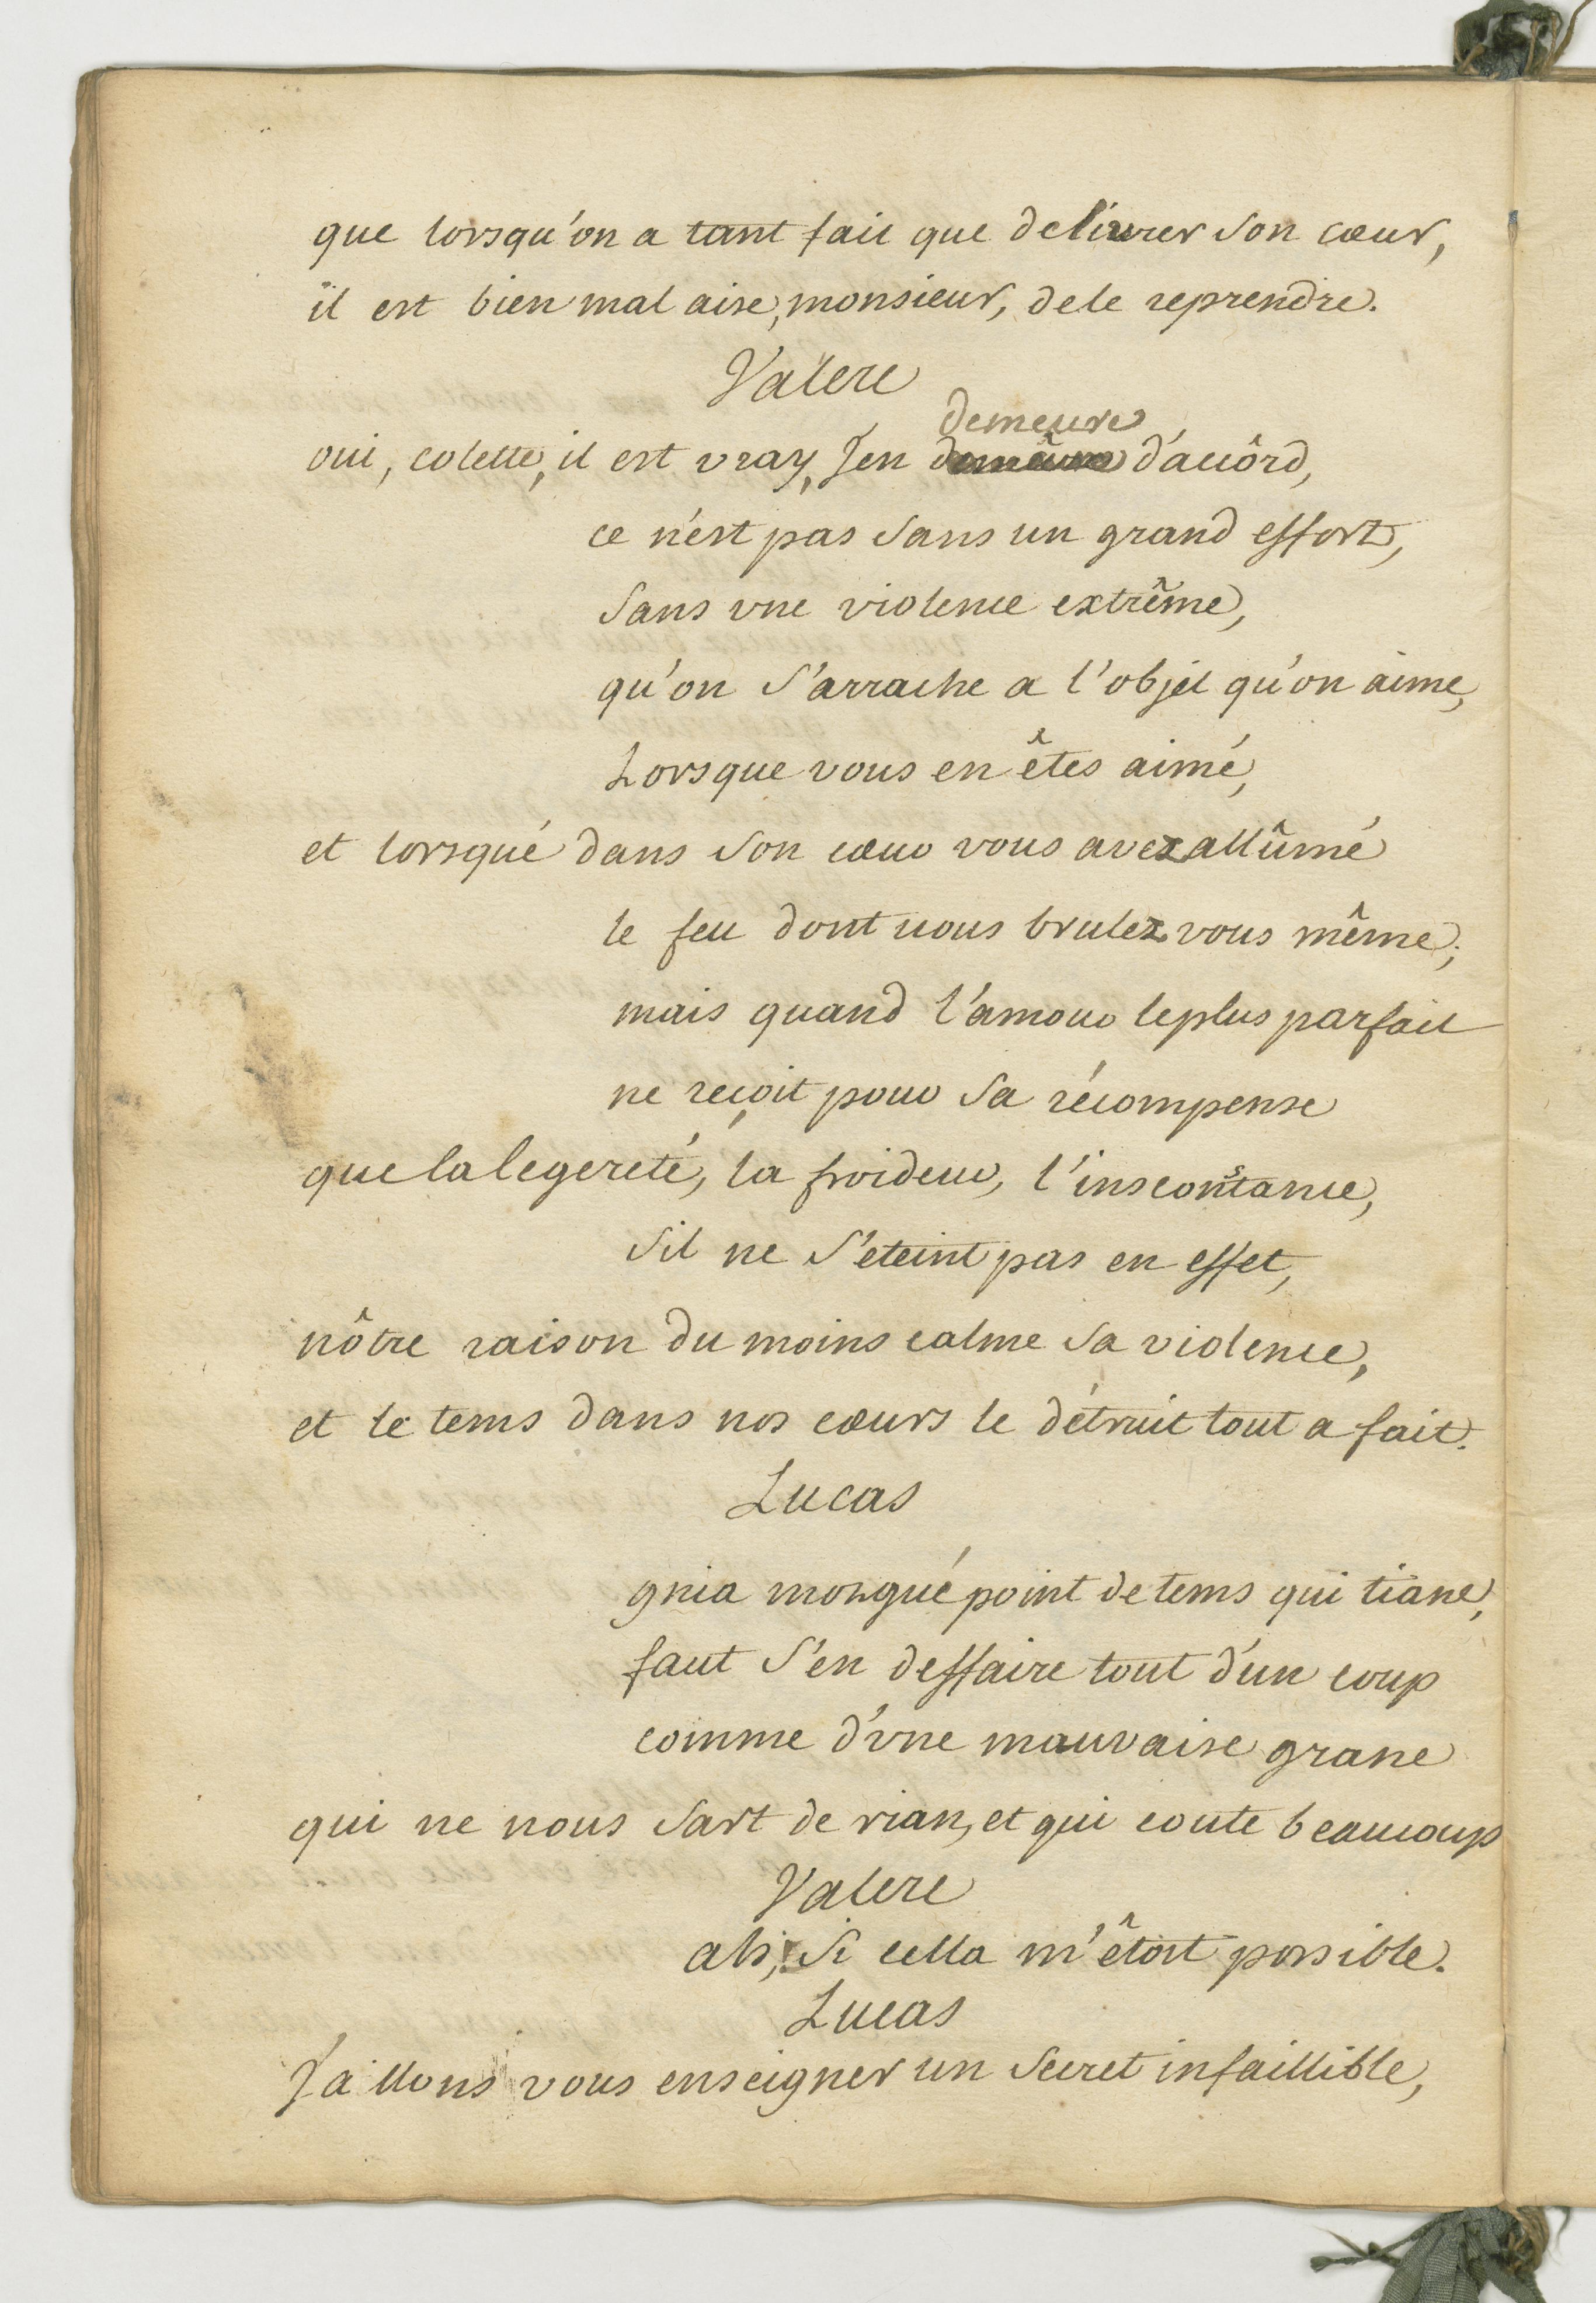 que lorsqu'on a tant fait que de livrer son cœur,
il est bien mal aise, monsieur, de le reprendre.
Valere
demeure
oui, colette, il est vray, J'en d'accôrd,
ce n'est pas sans un grand effort,
sans vne violence extrême,
qu'on s'arrache a l'objet qu'on aime,
Lorsque vous en êtes aimé,
et lorsqué dans son cœur vous avez allûmé
le feu dont vous brulez vous même;
mais quand l'amour le plus parfait
ne reçoit pour sa récompense
que la legereté, la froideur, l'insconstance,
s'il ne s'eteint pas en effet,
nôtre raison du moins calme sa violence,
et le tems dans nos cœurs le détruit tout a fait.
Lucas
gnia morgué point de tems qui tiane,
faut s'en deffaire tout d'un coup
comme d'vne mauvaise grane
qui ne nous sart de rian, et qui coute beaucoup
Valere
ah, ! si cella m'êtoit possible.
Lucas
J'allons vous enseigner un secret infaillible,